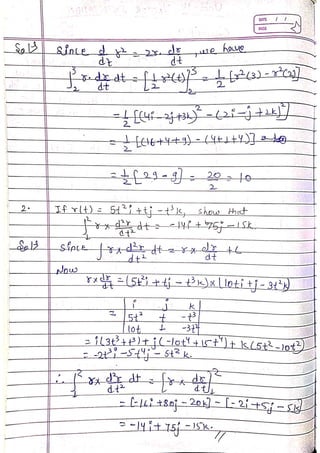 Sol 1) Since d/dt r² = 2r. dr/dt, we have
∫₂³ r. dr/dt dt = [1/2 r²(t)]₂³ = 1/2 [r²(3) - r²(2)]
= 1/2 [(4i - 2j + 3k)² - (2i - j + 2k)²]
= 1/2 [(16+4+9) - (4+1+4)]
= 1/2 [29 - 9] = 20/2 = 10
2. If r(t) = 5t²i + tj - t³k, show that
∫₁² r × d²r/dt² dt = -14i + 75j - 15k.
Sol 1) Since ∫ r × d²r/dt² dt = r × dr/dt + c
Now
r × dr/dt = (5t²i + tj - t³k) × (10ti + j - 3t²k)
= | i j k |
| 5t² t -t³ |
| 10t 1 -3t² |
= i(3t³ + t³) + j(-10t⁴ + 15t⁴) + k(5t² - 10t²)
= -2t³i - 5t⁴j - 5t²k.
∴ ∫₁² r × d²r/dt² dt = [r × dr/dt]₁²
= [-16i + 80j - 20k] - [-2i + 5j - 5k]
= -14i + 75j - 15k.